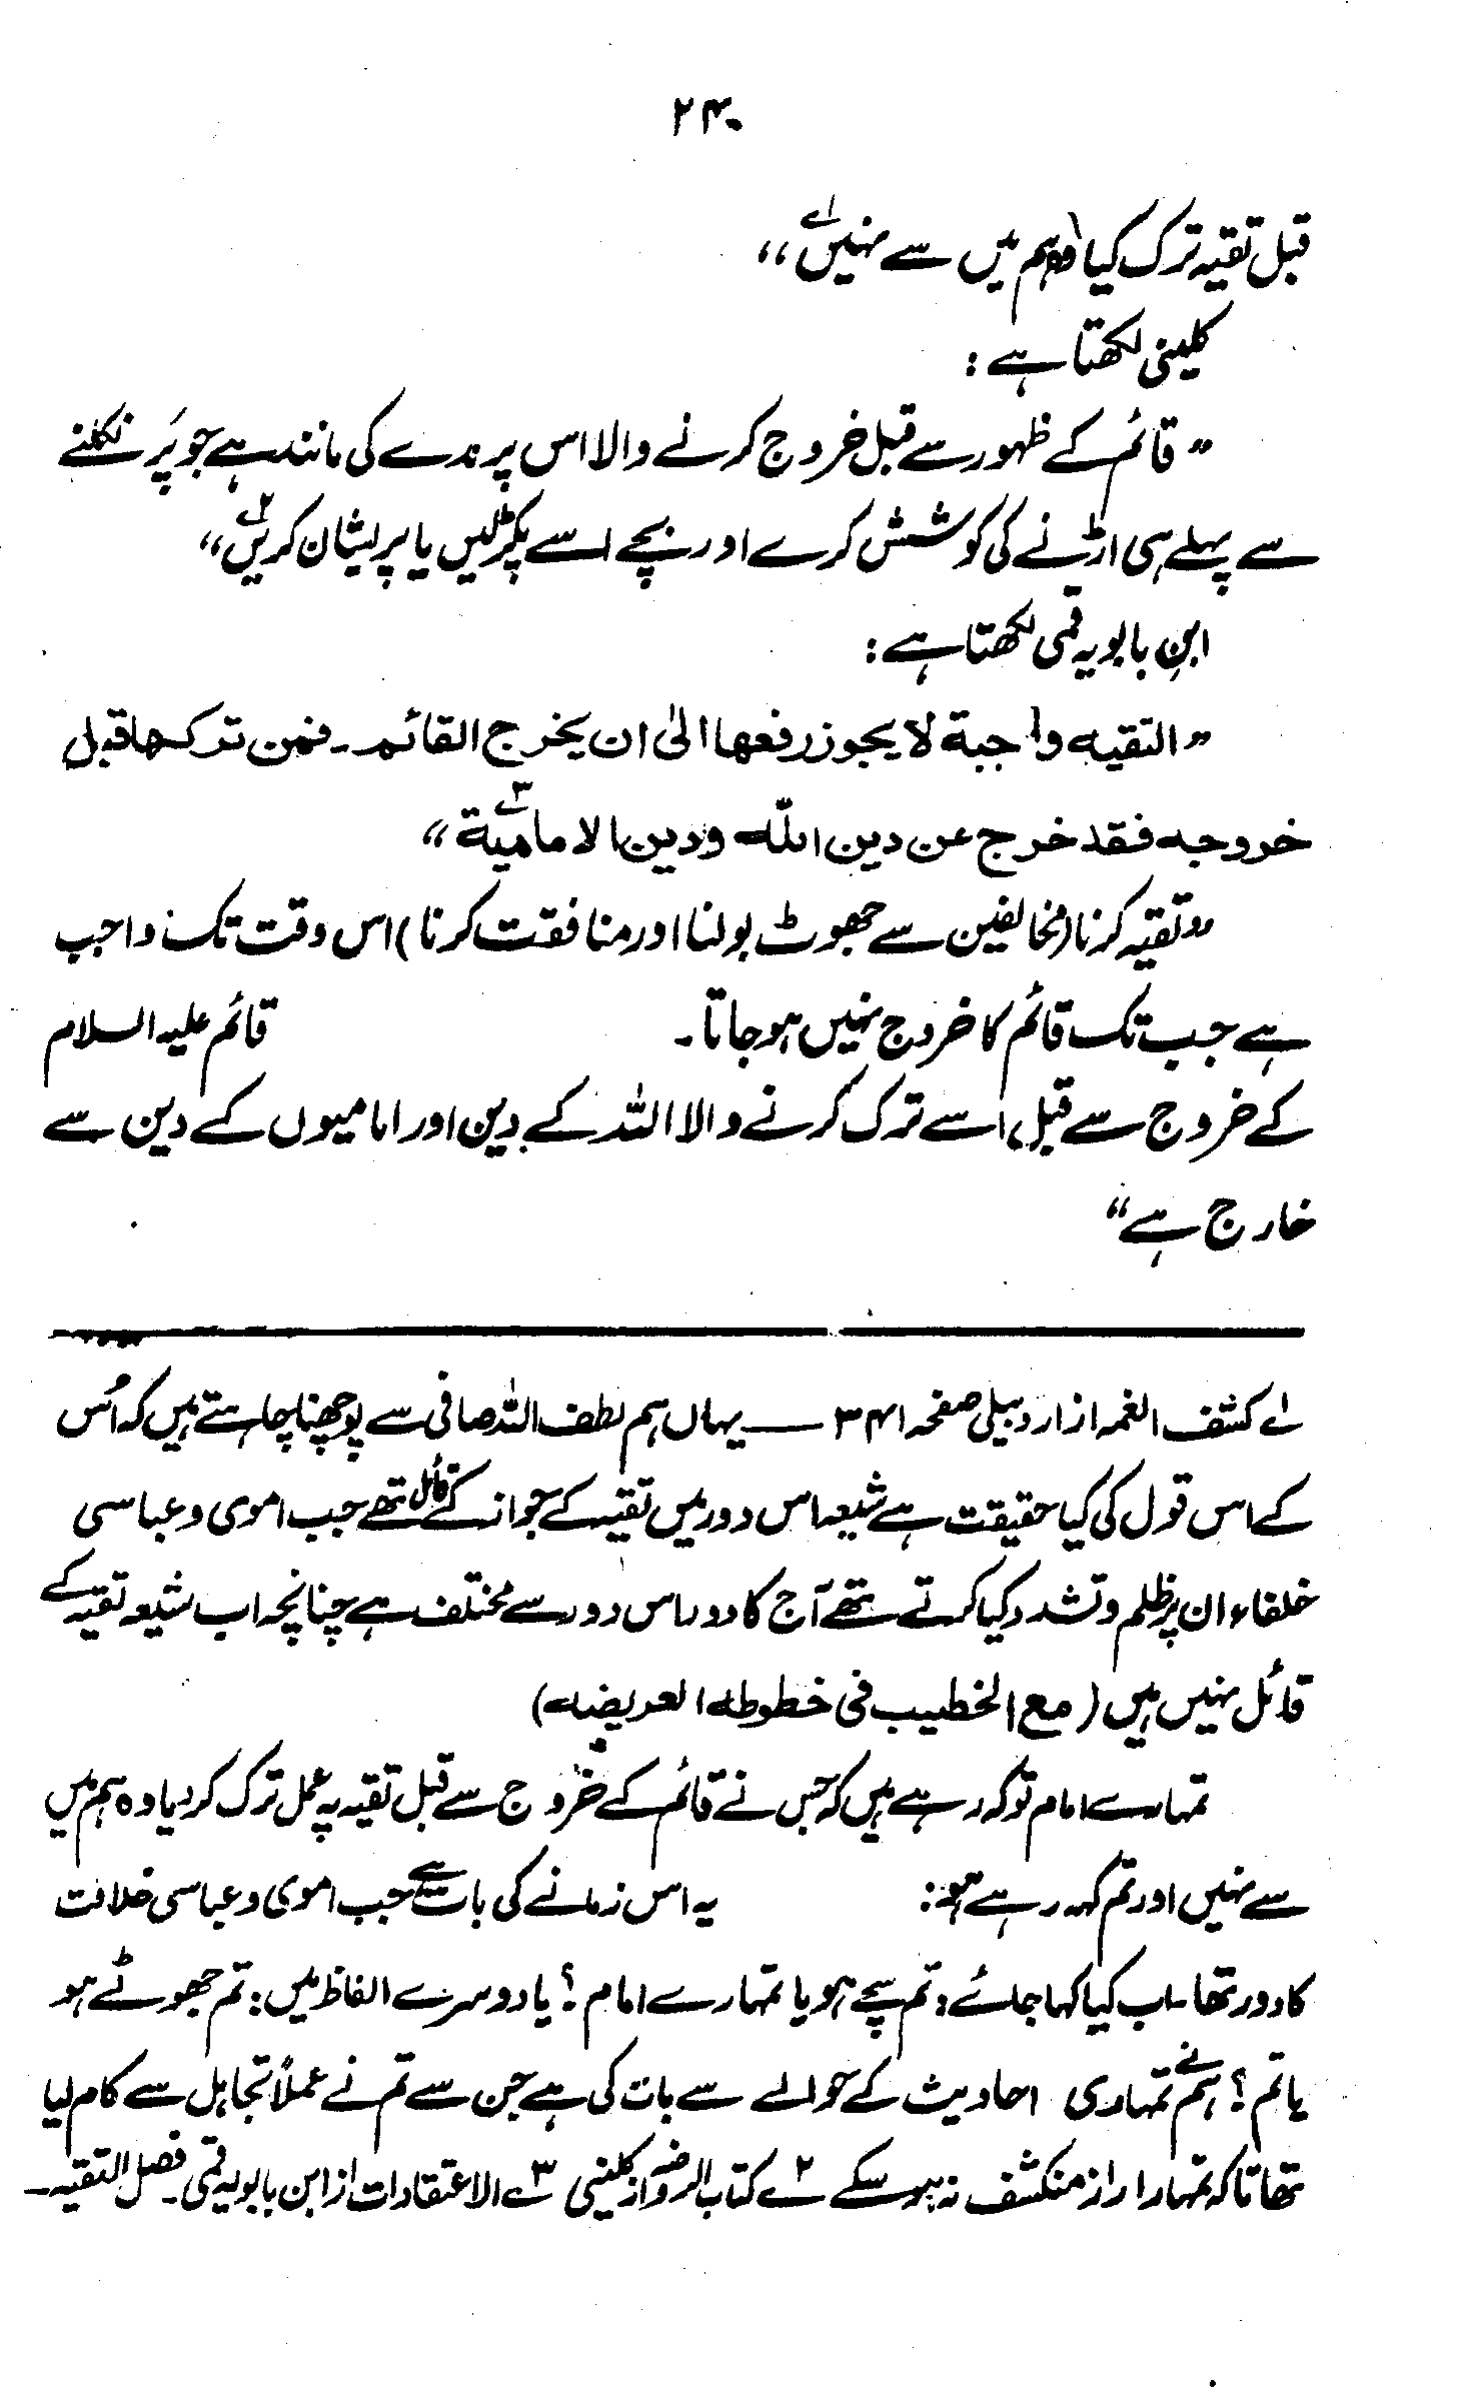 ۲۴۰
قبل تقیہ ترک کیا وہ ہم میں سے نہیں ۱؎،،
کلینی لکھتا ہے :
" قائم کے ظہور سے قبل خروج کرنے والا اس پرندے کی مانند ہے جو پَر نکلنے
سے پہلے ہی اڑنے کی کوشش کرے اور بچے اسے پکڑ لیں یا پریشان کریں ۲؎"
ابنِ بابویہ قمی لکھتا ہے :
" التقیہ واجبة لا یجوز رفعھا الیٰ ان یخرج القائم ۔ فمن ترکھا قبل
خروجہ فقد خرج عن دین اللہ ودین الامامیة ۳؎"
"تقیہ کرنا (مخالفین سے جھوٹ بولنا اور منافقت کرنا) اس وقت تک واجب
ہے جب تک قائم کا خروج نہیں ہو جاتا ۔ قائم علیہ السلام
کے خروج سے قبل اسے ترک کرنے والا اللہ کے دین اور امامیوں کے دین سے
خارج ہے"
۱؎ کشف الغمہ از اردبیلی صفحہ ۳۴۱ — یہاں ہم لطف اللہ صافی سے پوچھنا چاہتے ہیں کہ اُس
کے اس قول کی کیا حقیقت ہے شیعہ اس دور میں تقیہ کے جواز کے قائل تھے جب اموی و عباسی
خلفاء ان پر ظلم و تشدد کیا کرتے تھے آج کا دور اس دور سے مختلف ہے چنانچہ اب شیعہ تقیہ کے
قائل نہیں ہیں (مع الخطیب فی خطوطہ العریضہ)
تمہارے امام تو کہ رہے ہیں کہ جس نے قائم کے خروج سے قبل تقیہ پہ عمل ترک کر دیا وہ ہم میں
سے نہیں اور تم کہہ رہے ہو : یہ اس زمانے کی بات ہے جب اموی و عباسی خلافت
کا دور تھا ۔ اب کیا کہا جائے : تم سچے ہو یا تمہارے امام ؟ یا دوسرے الفاظ میں : تم جھوٹے ہو
یا تم ؟ ہم نے تمہاری احادیث کے حوالے سے بات کی ہے جن سے تم نے عملاً تجاہل سے کام لیا
تھا تاکہ تمہارا راز منکشف نہ ہو سکے ۲؎ کتاب الروضہ از کلینی ۳؎ الاعتقادات از ابن بابویہ قمی ۔ فصل التقیہ ۔